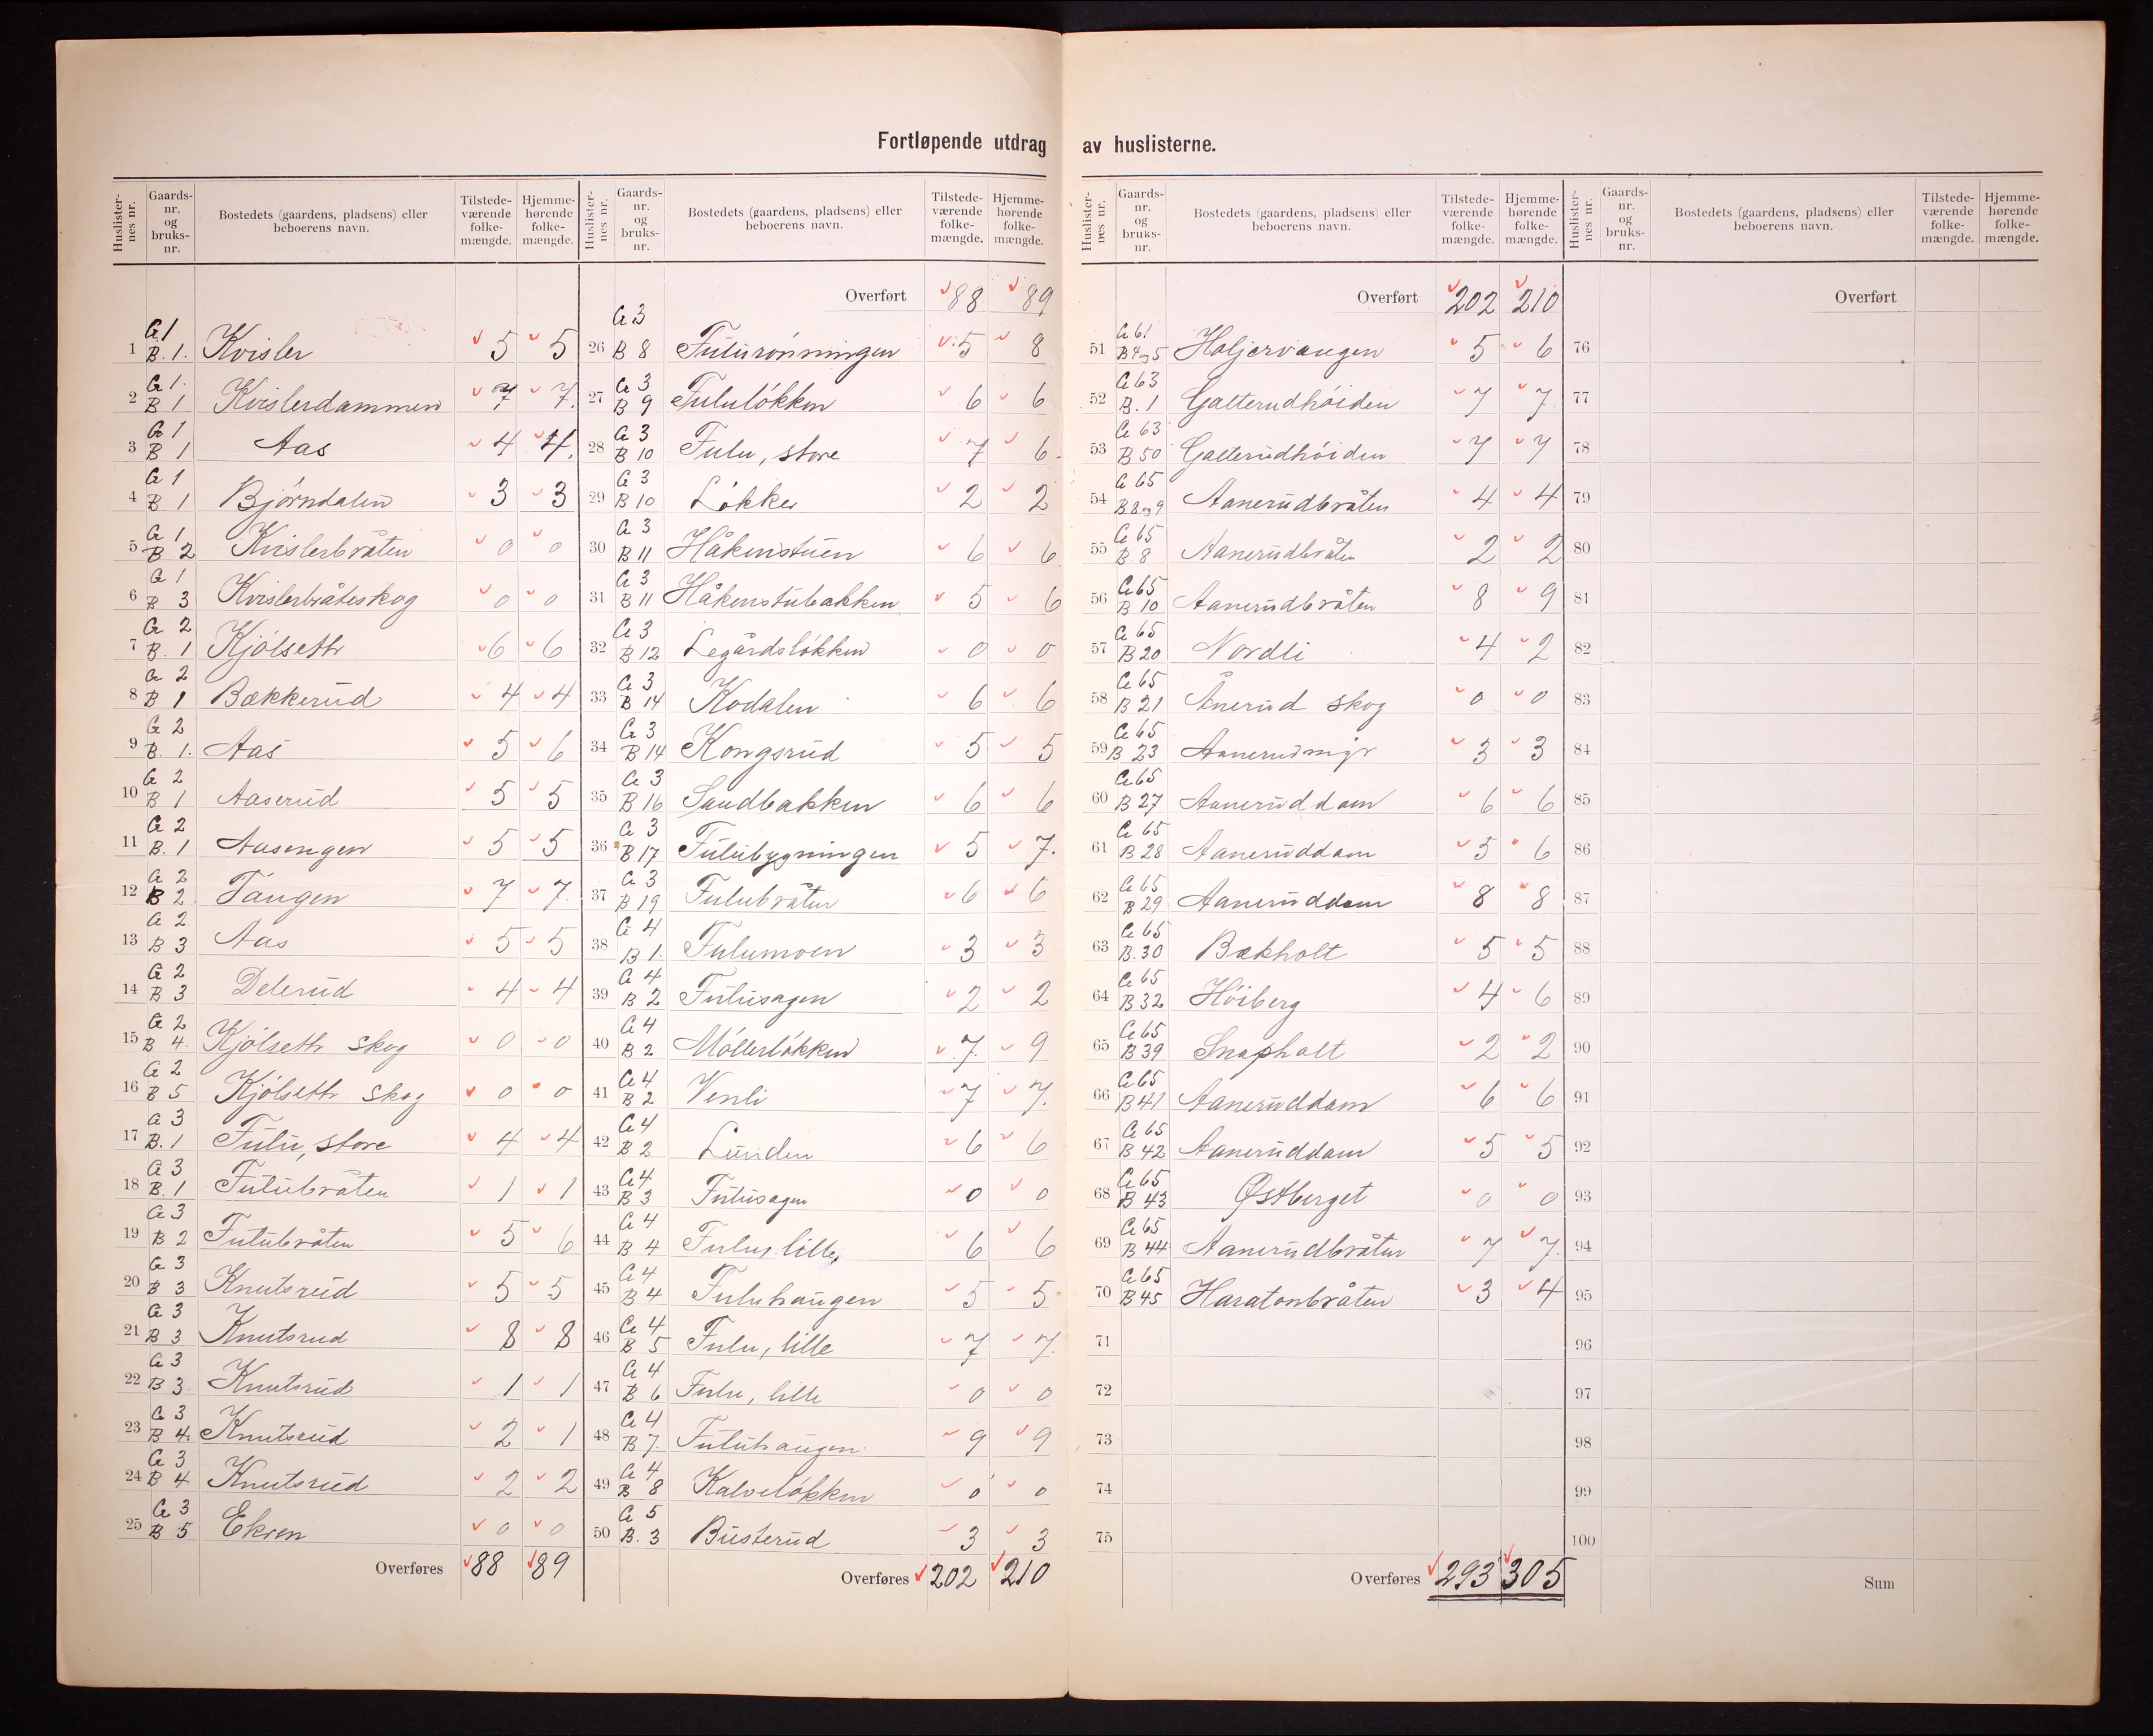 Fortløpende utdrag av huslisterne.
Huslisternes nr. Gaards-nr. og bruks-nr. Bostedets (gaardens, pladsens) eller beboerens navn. Tilstedeværende folkemængde. Hjemmehørende folkemængde.
1 G 1 B. 1. Kvisler 5 5
2 G 1. B 1 Kvislerdammen 7 7.
3 G 1 B 1 Aas 4 4.
4 G 1 B 1 Bjørndalen 3 3
5 G 1 B 2 Kvislerbråten 0 0
6 G 1 B 3 Kvislerbråteskog 0 0
7 G 2 B. 1 Kjølseth 6 6
8 G 2 B 1 Bækkerud 4 4
9 G 2 B. 1. Aas 5 6
10 G 2 B 1 Aaserud 5 5
11 G 2 B. 1 Aasengen 5 5
12 G 2 B 2 Tangen 7 7.
13 G 2 B 3 Aas 5 5
14 G 2 B 3 Delerud 4 4
15 G 2 B 4. Kjølseth skog 0 0
16 G 2 B 5 Kjølseth skog 0 0
17 G 3 B. 1 Fulu, store 4 4
18 G 3 B. 1 Fulubråten 1 1
19 G 3 B 2 Fulubråten 5 6
20 G 3 B 3 Knutsrud 5 5
21 G 3 B 3 Knutsrud 8 8
22 G 3 B 3 Knutsrud 1 1
23 G 3 B 4. Knutsrud 2 1
24 G 3 B 4 Knutsrud 2 2
25 G 3 B 5 Ekren 0 0
Overføres 88 89
Huslisternes nr. Gaards-nr. og bruks-nr. Bostedets (gaardens, pladsens) eller beboerens navn. Tilstedeværende folkemængde. Hjemmehørende folkemængde.
Overført 88 89
26 G 3 B 8 Fulurønningen 5 8
27 G 3 B 9 Fululøkken 6 6
28 G 3 B 10 Fulu, store 7 6.
29 G 3 B 10 Løkka 2 2
30 G 3 B 11 Håkenstuen 6 6
31 G 3 B 11 Håkenstubakken 5 6
32 G 3 B 12 Legårdsløkken 0 0
33 G 3 B 14 Kodalen 6 6
34 G 3 B 14 Kongsrud 5 5
35 G 3 B 16 Sandbakken 6 6
36 G 3 B 17 Fulubygningen 5 7.
37 G 3 B 19 Fulubråten 6 6
38 G 4 B 1. Fulumoen 3 3
39 G 4 B 2 Fulusagen 2 2
40 G 4 B 2 Møllerløkken 7. 9
41 G 4 B 2 Venli 7 7.
42 G 4 B 2 Lunden 6 6
43 G 4 B 3 Fulusagen 0 0
44 G 4 B 4 Fulu, lille, 6 6
45 G 4 B 4 Fuluhaugen 5 5
46 G 4 B 5 Fulu, lille 7 7.
47 G 4 B 6 Fulu, lille 0 0
48 G 4 B 7. Fuluhaugen 9 9
49 G 4 B 8 Kalveløkken 0 0
50 G 5 B. 3 Busterud 3 3
Overføres 202 210
Huslisternes nr. Gaards-nr. og bruks-nr. Bostedets (gaardens, pladsens) eller beboerens navn. Tilstedeværende folkemængde. Hjemmehørende folkemængde.
Overført 202 210
51 G 61 B 4 og 5 Holjervangen 5 6
52 G 63 B. 1 Galterudhøiden 7 7.
53 G 63 B 50 Galterudhøiden 7 7
54 G 65 B 8 og 9 Aanerudbråten 4 4
55 G 65 B. 8 Aanerudbråten 2 2
56 G 65 B 10 Aanerudbråten 8 9
57 G 65 B 20 Nordli 4 2
58 G 65 B 21 Ånerud skog 0 0
59 G 65 B 23 Aanerudmyr 3 3
60 G 65 B 27 Aaneruddam 6 6
61 G 65 B 28 Aaneruddam 5 6
62 G 65 B 29 Aaneruddam 8 8
63 G 65 B. 30 Bækholt 5 5
64 G 65 B 32 Høiberg 4 6
65 G 65 B 39 Snapholt 2 2
66 G 65 B 41 Aaneruddam 6 6
67 G 65 B 42 Aaneruddam 5 5
68 G 65 B 43 Østberget 0 0
69 G 65 B 44 Aanerudbråten 7 7.
70 G 65 B 45 Haratonbråten 3 4
71
72
73
74
75
Overføres 293 305
Huslisternes nr. Gaards-nr. og bruks-nr. Bostedets (gaardens, pladsens) eller beboerens navn. Tilstedeværende folkemængde. Hjemmehørende folkemængde.
Overført
76
77
78
79
80
81
82
83
84
85
86
87
88
89
90
91
92
93
94
95
96
97
98
99
100
Sum